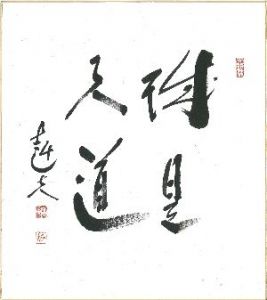 誠是
天道